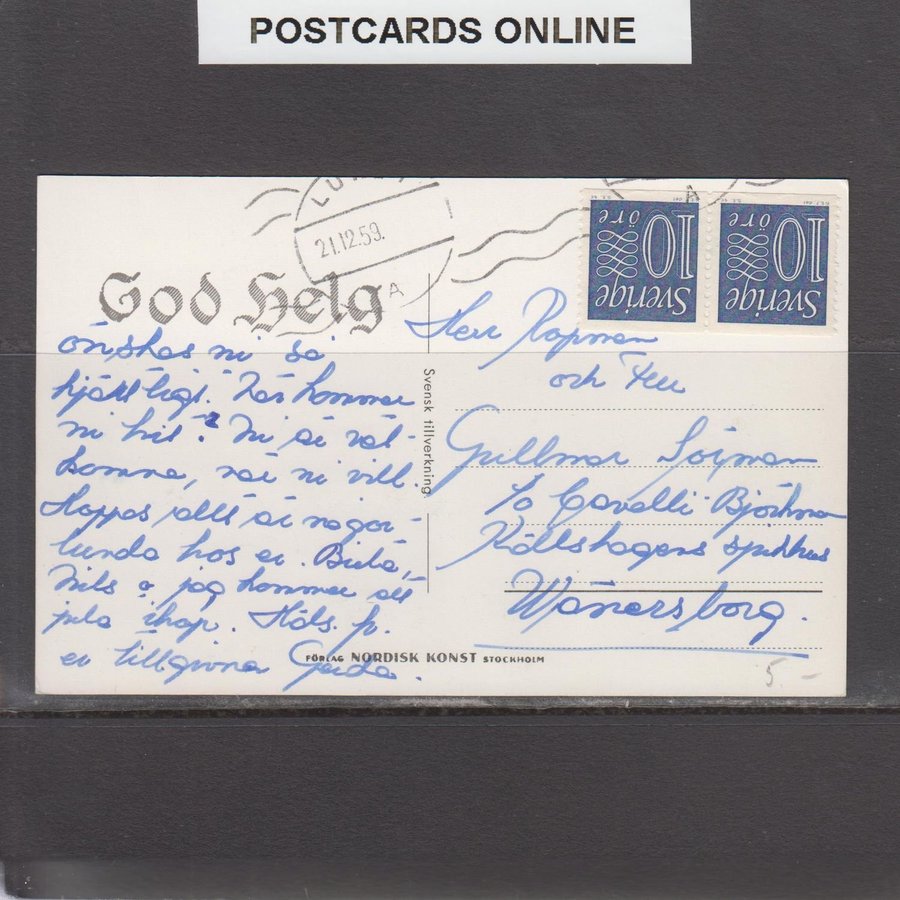 POSTCARDS ONLINE
21.12.59.
A
A
Sverige 10 öre
Sverige 10 öre
God Helg
önskas ni så
hjärtligt. När kommer
ni hit? Ni är väl-
komna, när ni vill.
Hoppas allt är någor-
lunda hos er.
Nils o jag kommer att
ihop. Häls. fr.
er tillgivna Gerda.
Svensk tillverkning
Herr
och Fru
Gullmar
c/o Cavalli-Björkman
Källshagens sjukhus
Wänersborg.
FÖRLAG NORDISK KONST STOCKHOLM
5.-